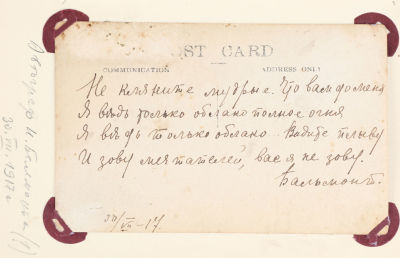 POST CARD
COMMUNICATION ADDRESS ONLY
Не кляните мудрые. Что вам до меня
Я вѣдь только облако полное огня
Я вѣдь только облако. Видите плыву
И зову мечтателей, вас я не зову.
Бальмонт.
30/VII -17.
Автограф К. Бальмонта (!)
30.VII.1917 г.